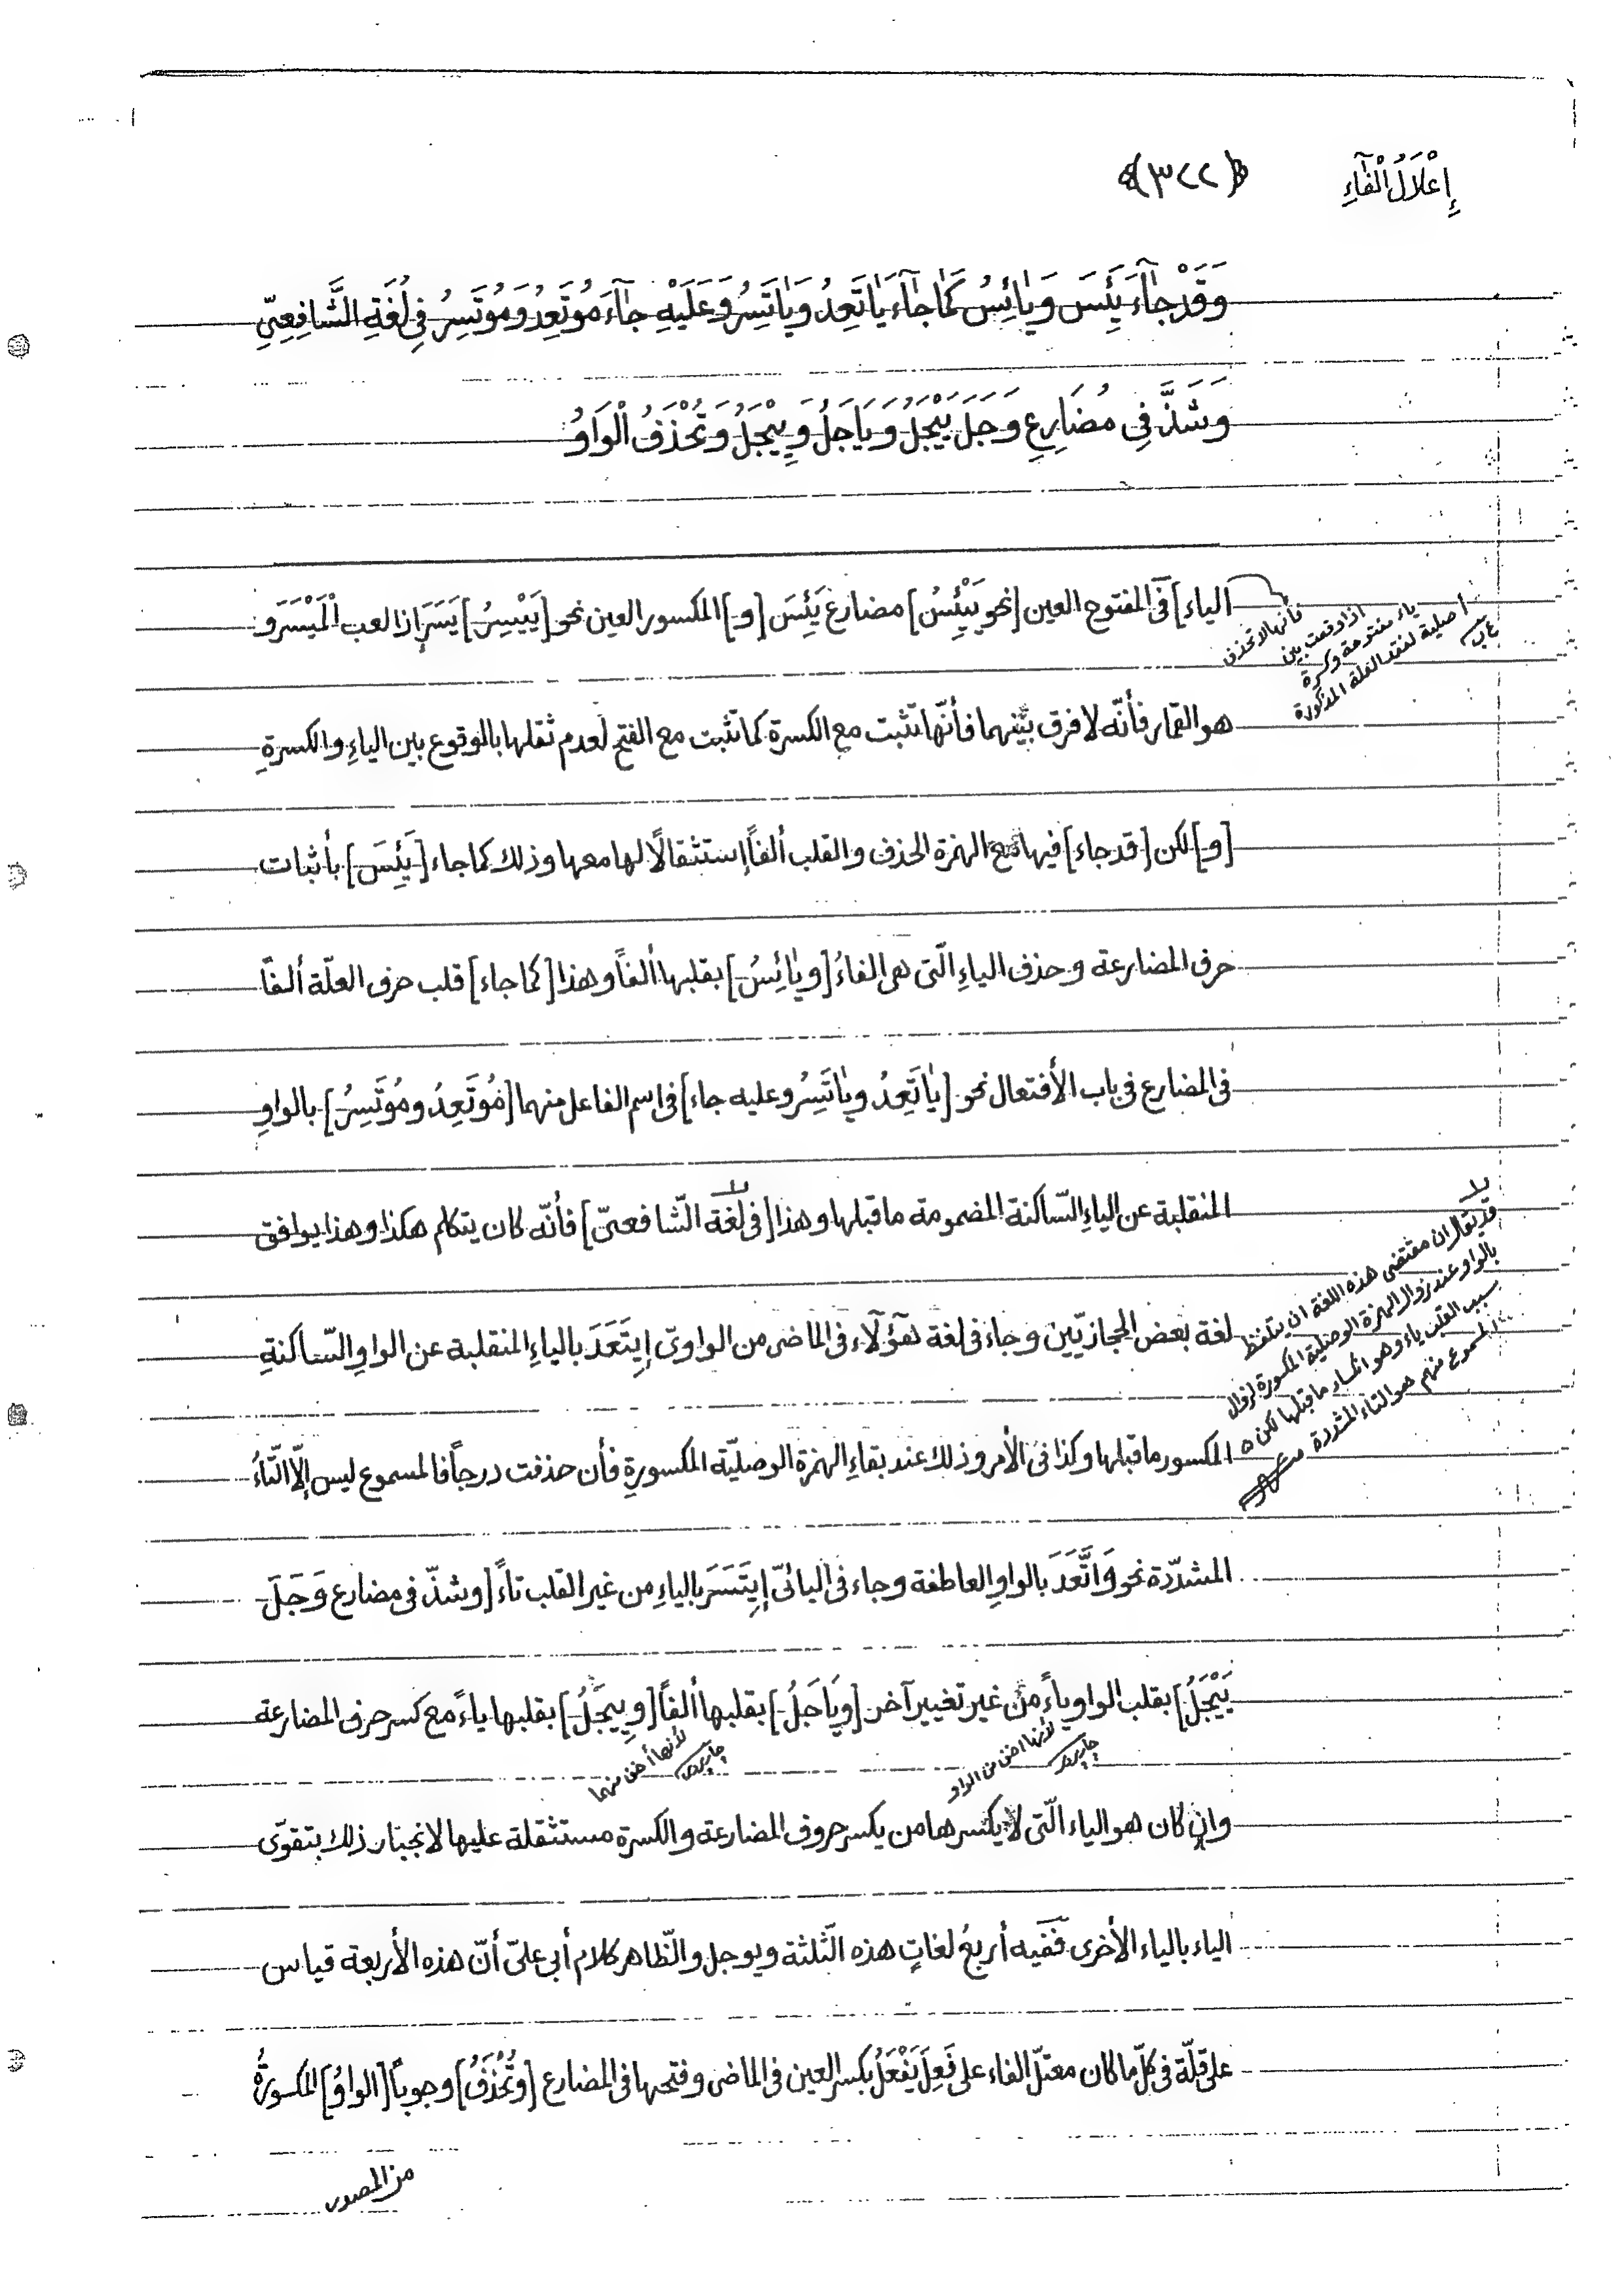 إِعْلَالُ الْفَآءِ
﴿٣٢٢﴾
وَقَدْ جَآءَ يَئِسَ وَيَائِسُ كَمَا جَآءَ يَاتَعِدُ وَيَاتَسِرُ وَعَلَيْهِ جَآءَ مُوتَعِدُ وَمُوتَسِرُ فِي لُغَةِ الشَّافِعِيِّ
وَشَذَّ فِي مُضَارِعِ وَجَلَ يَيْجَلُ وَيَاجَلُ وَيِيْجَلُ وَتُحْذَفُ الْوَاوُ
الياء] فى المفتوح العين [نحو يَيْئِسُ] مضارع يَئِسَ [و] المكسور العين نحو [يَيْسِرُ] يَسَرَ إذا لعب الْمَيْسَرَ و
هو القمار فأنّه لا فرق بينهما فأنّها تثبت مع الكسرة كما تثبت مع الفتح لعدم ثقلها بالوقوع بين الياءِ والكسرةِ
[و] لكن [قد جاء] فيها مع الهمزة الحذف والقلب ألفاً إستثقالًا لها معها وذلك كما جاء [يَئِسَ] بأثبات
حرف المضارعة وحذف الياءِ الّتى هى الفاءُ [ويَائِسُ] بقلبها ألفاً وهذا [كما جاء] قلب حرف العلّة ألفًا
فى المضارع فى باب الأفتعال نحو [يَاتَعِدُ وياتَسِرُ وعليه جاء] فى اسم الفاعل منهما [مُوتَعِدُ ومُوتَسِرُ] بالواوِ
المنقلبة عن الياءِ السّاكنة المضمومة ما قبلها وهذا [فى لغة الشّافعىّ] فأنّه كان يتكلم هكذا وهذا يوافق
لغة بعض الحجازيّين وجاء فى لغة هؤلآء فى الماضى من الواوىّ إِيتَعَدَ بالياءِ المنقلبة عن الواوِ السّاكنةِ
المكسور ما قبلها وكذا فى الأمر وذلك عند بقاءِ الهمزة الوصليّة المكسورةِ فأن حذفت درجاً فالمسموع ليس إلّا التّاءُ
المشدّدة نحو وَاتَّعَدَ بالواوِ العاطفة وجاء فى اليائىّ إِيتَسَرَ بالياءِ من غير القلب تاءً [وشذّ فى مضارع وَجَلَ
يَيْجَلُ] بقلب الواو ياءً من غير تغيير آخر [وياَجَلُ] بقلبها ألفاً [وِيِيجَلُ] بقلبها ياءً مع كسر حرف المضارعة
وان كان هو الياء الّتى لا يكسرها من يكسر حروف المضارعة والكسرة مستثقلة عليها لانجبار ذلك بتقوّى
الياء بالياء الأخرى فَفيه أربعُ لغاتٍ هذه الثّلثة ويوجل والظّاهر كلام أبى علىّ أنّ هذه الأربعة قياس
على قلّة فى كلّ ما كان معتلّ الفاء على فَعِلَ يَفْعَلُ بكسر العين فى الماضى وفتحها فى المضارع [وتُحْذَفُ] وجوباً [الواوُ] المكسورةُ
فأنّها لا تحذف
اذا وقعت بين
ياء مفتوحة وكسرة
أصلية لفقد العلة المذكورة
قد يقال ان مقتضى هذه اللغة ان يتلفظ
بالواو عند زوال الهمزة الوصلية المكسورة لزوال
سبب القلب ياء وهو انكسار ما قبلها لكن
المسموع منهم هو التاء المشددة
لأنها اخف من الواو
جاربردى
لأنها أخف منهما
جاربردى